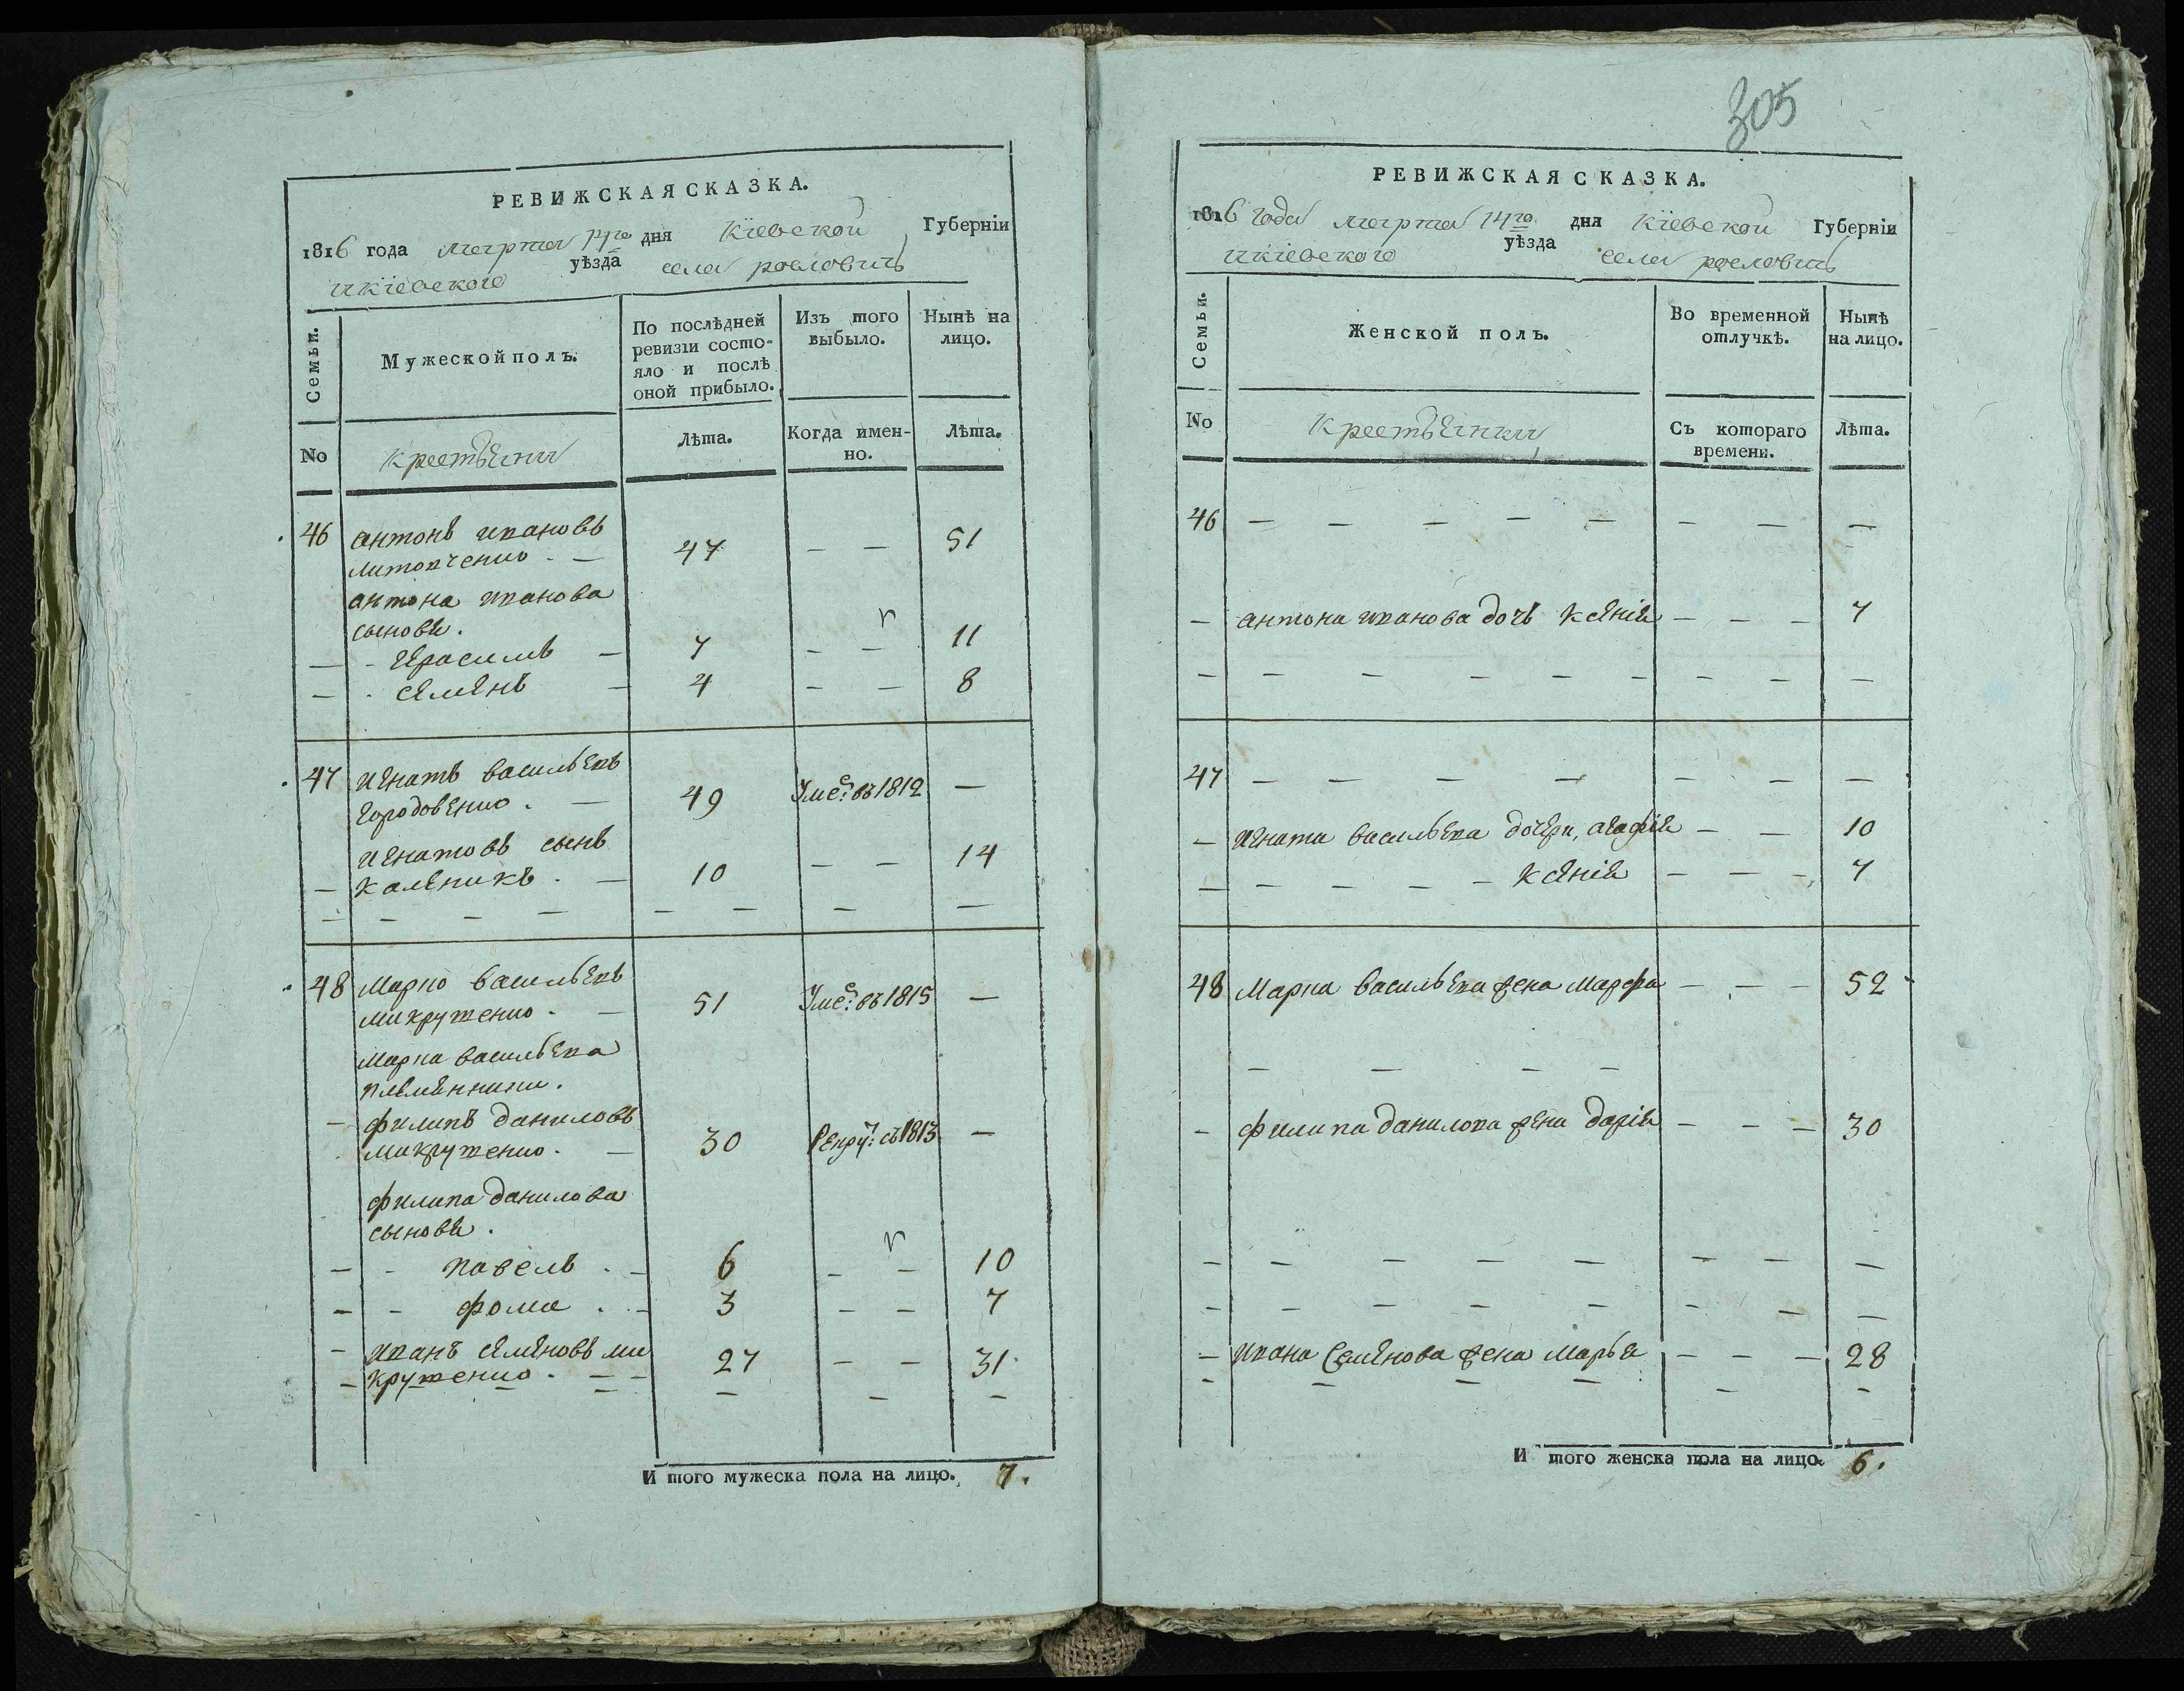 РЕВИЖСКАЯ СКАЗКА.
1816 года марта 14го дня Кіевской Губерніи
икіевского уѣзда села рословичъ
Семьи.
Мужеской полъ.
По послѣдней ревизіи состояло и послѣ оной прибыло.
Изъ того выбыло.
Нынѣ на лицо.
No
крестьяни
Лѣта.
Когда именно.
Лѣта.
46 антонъ ивановъ
47 — — 51
антона иванова
сыновя.
— - герасимъ — 7 — — 11
— - семенъ — 4 — — 8
47 игнатъ васильевъ
городовенко . — 49 Умеˢ: въ 1812 —
игнатовъ сынъ
— калѣникъ . — 10 — — 14
— — — — — — — —
48 марко васильевъ
микрутенко . — 51 Умеˢ: въ 1815 —
марка васильева
племянники.
— филипъ даниловъ
микрутенко . — 30 Рекруᵗ: съ 1813 —
филипа данилова
сыновя .
— - павелъ . — 6 — — 10
— - фома . — 3 — — 7
— иванъ семеновъ ми
— крутенко . — — 27 — — 31
И того мужеска пола на лицо. 7.
305
РЕВИЖСКАЯ СКАЗКА.
1816 года марта 14го дня Кіевской Губерніи
икіевского уѣзда села рословичъ
Семьи.
Женской полъ.
Во временной отлучкѣ.
Нынѣ на лицо.
No
крестьянки
Съ котораго времени.
Лѣта.
46 — — — — — — — —
— антона иванова дочъ ксенія — — — 7
— — — — — — — — —
47 — — — — — — —
— игната васильева дочери, агафія — — 10
— — — — — — ксенія — — — 7
48 марка васильева жена марфа — — — 52
— — — —
— филипа данилова жена дарія — — — 30
— — — — — — — —
— — — — — — — —
— ивана семенова жена марья — — — 28
— — — — — —
И того женска пола на лицо. 6.